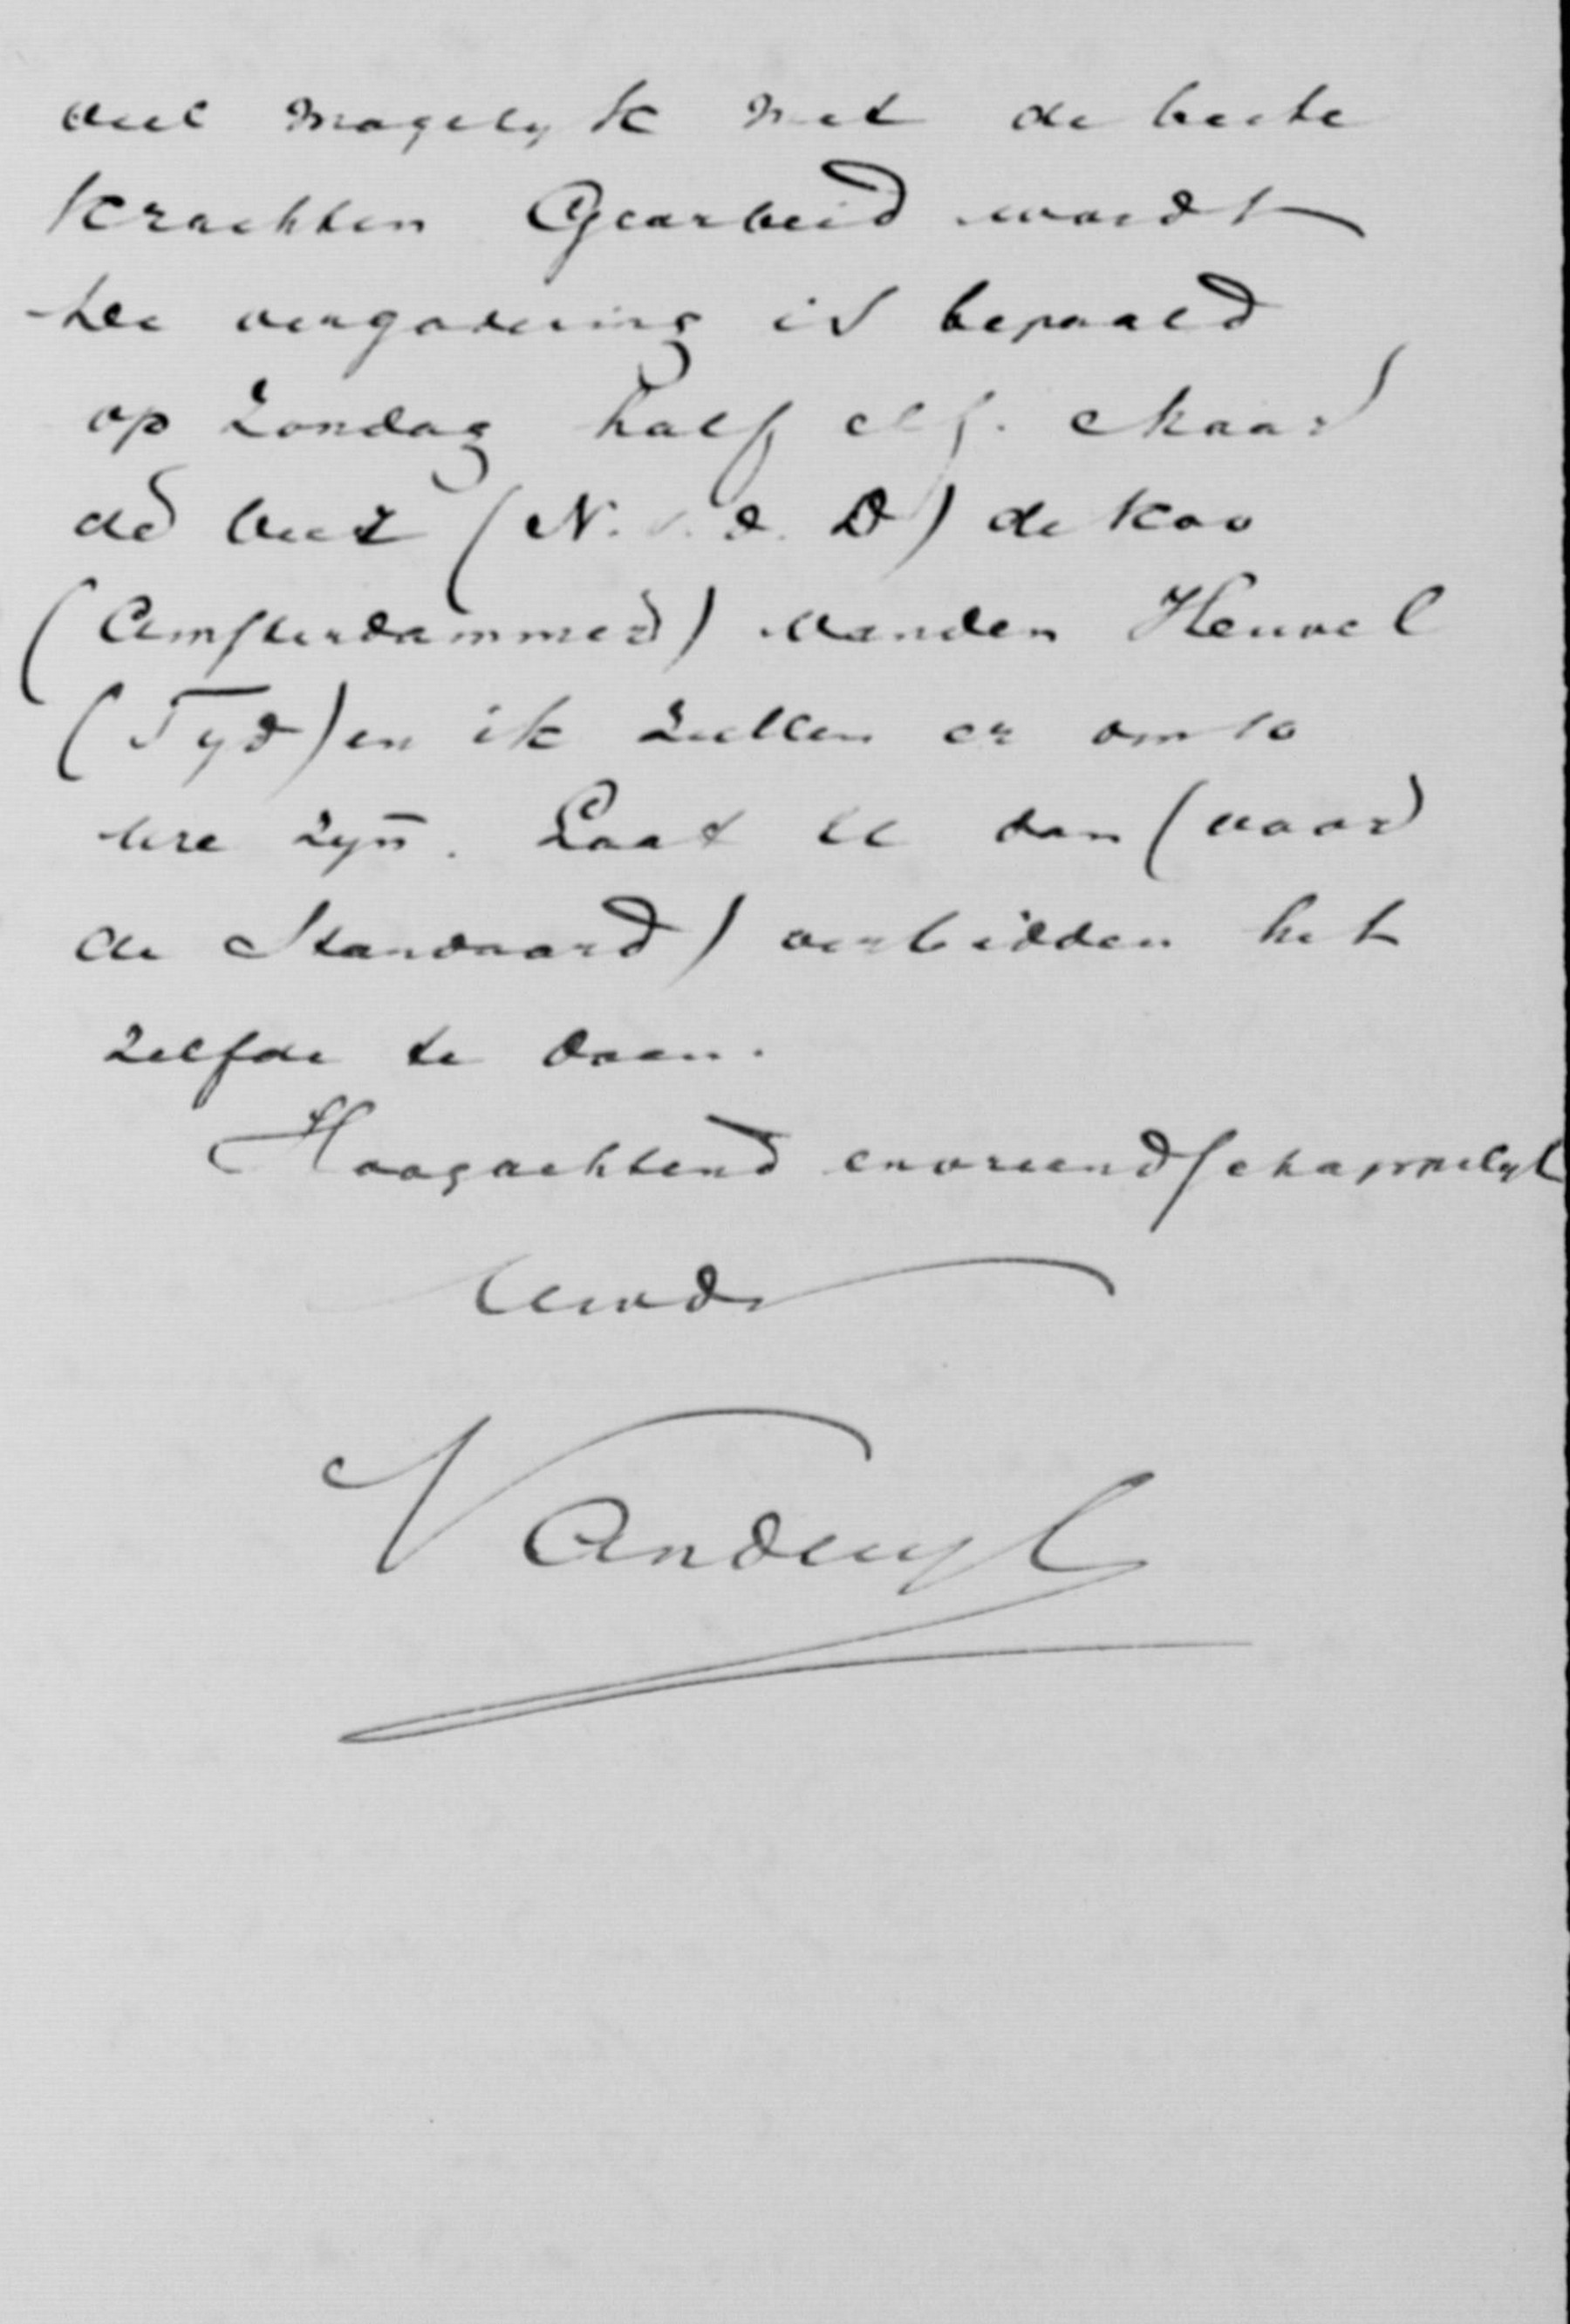 veel mogelyk met de beste
krachten Gearbeid wordt
De vergadering is bepaald
op Zondag half elf. Maar
de Beer (N. v. d. D) de Koo
(Amsterdammer) Vanden Heuvel
(Tyd) en ik zullen er om 10
ure zyn. Laat U dan (voor
de Standaard) verbidden het
zelfde te doen.
Hoogachtend en vriendschappelyk
Uwd
Vanduyl